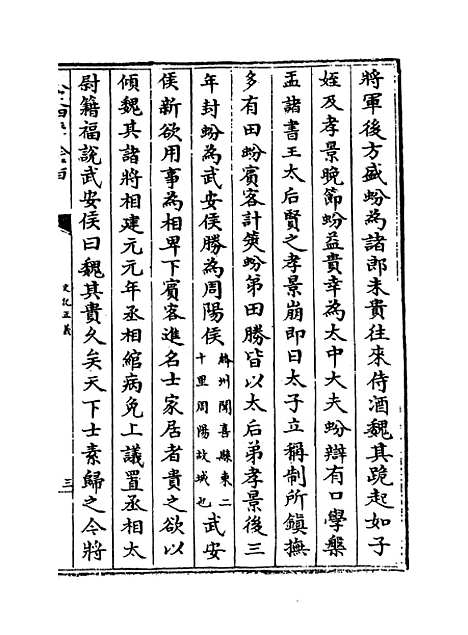 將軍後方盛蚡為諸郎未貴往來侍酒魏其跪起如子
姪及孝景晚節蚡益貴幸為太中大夫蚡辯有口學槃
盂諸書王太后賢之孝景崩即日太子立稱制所鎮撫
多有田蚡賓客計筴蚡弟田勝皆以太后弟孝景後三
年封蚡為武安侯勝為周陽侯絳州聞喜縣東二十里周陽故城也武安
侯新欲用事為相卑下賓客進名士家居者貴之欲以
傾魏其諸將相建元元年丞相綰病免上議置丞相太
尉籍福說武安侯曰魏其貴久矣天下士素歸之今將
史記正義
三